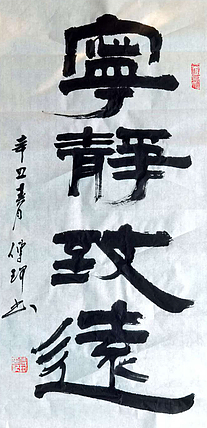 寧靜致遠
辛丑春傅琿书